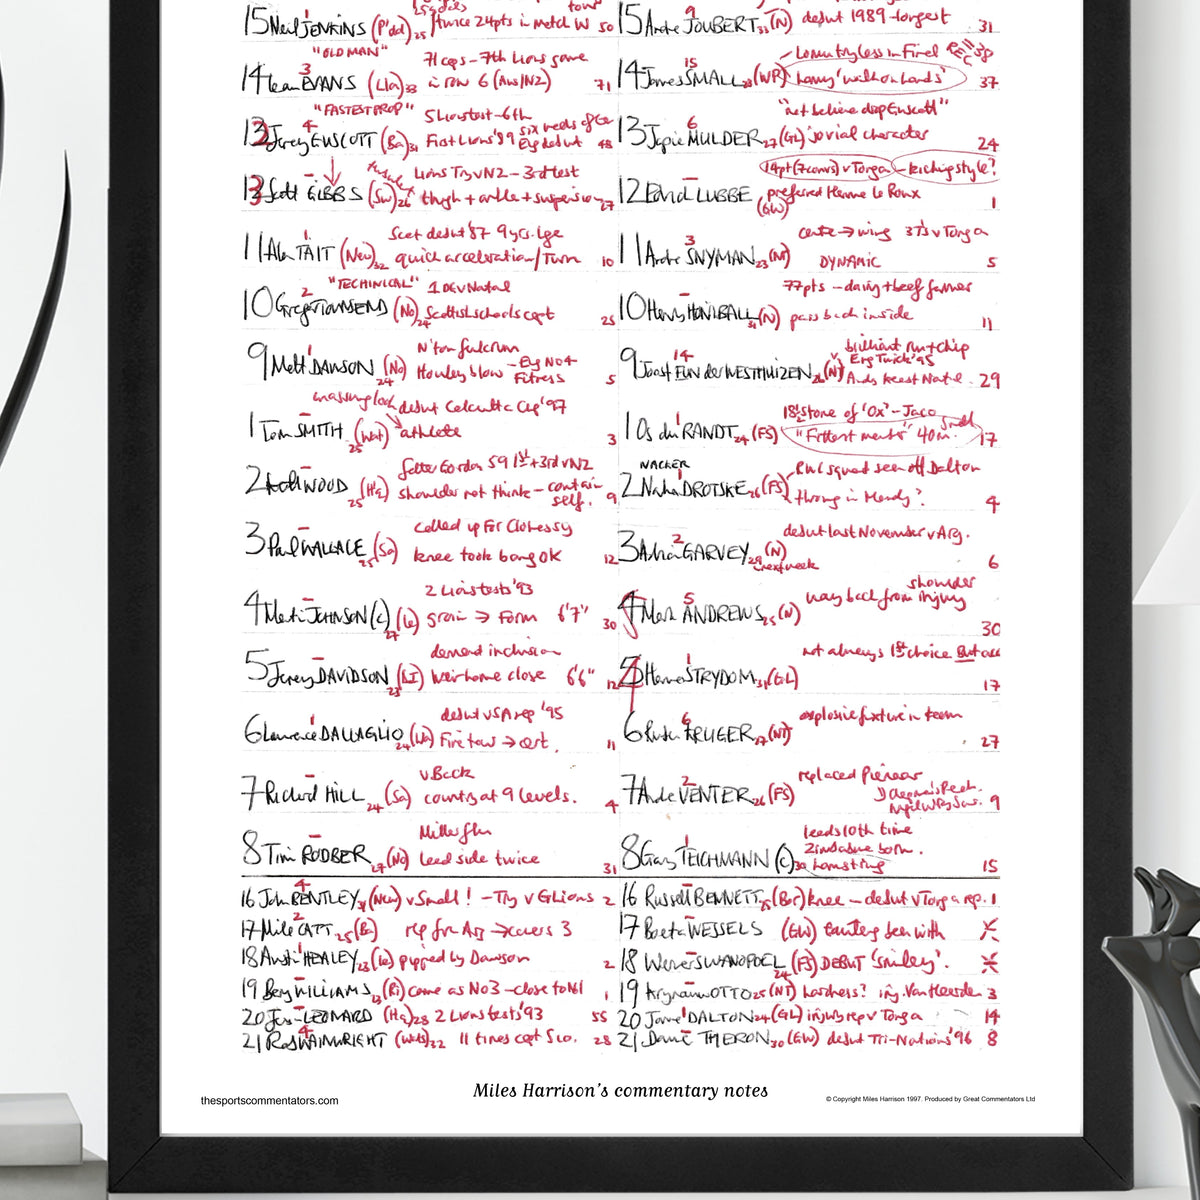 15 Neil JENKINS (P'dd) 25 thrice 24pts in match W 50
"OLD MAN" 71 caps - 7th Lions game
14 Ieuan EVANS (Lla) 33 in row 6 (Aus/NZ) 71
"FASTEST PROP" 5 Lions test - 6th
13 Jerry GUSCOTT (Ba) 31 First Lions '89 six weeks after Eng debut 48
Lions Try v NZ - 3rd test
Scott GIBBS (Sw) 26 thigh + ankle + suspension 27
Scot debut '87 9 yrs. Lge
11 Alan TAIT (New) 32 quick acceleration/Turn 10
"TECHINICAL" 1 DEV Natal
10 Gregor TOWNSEND (No) 24 Scottish schools capt 25
N'ton fulcrum
9 Matt DAWSON (No) 24 Howley blow - Eng No4 Fitness 5
debut Calcutta Cup '97
1 Tom SMITH (Wat) 25 athlete 3
1st + 3rd v NZ
2 Keith WOOD (Ha) 25 shoulder not think - contain self. 9
called up for Clohessy
3 Paul WALLACE (Sa) 25 knee took bang OK 12
2 Lions tests '93
4 Martin JOHNSON (c) (Le) 27 groin → Form 6'7" 30
demand inclusion
5 Jeremy DAVIDSON (LI) 23 weir home close 6'6" 12
debut v SA rep '95
6 Lawrence DALLAGLIO (Wa) 24 11
v Back
7 Richard HILL (Sa) 24 country at 9 levels. 4
8 Tim RODBER (No) 27 lead side twice 31
16 John BENTLEY (New) v Small! - Try v G Lions 2
17 Mike CATT 25 (Ba) rep for Arg → covers 3
18 Austin HEALEY 23 (Le) pipped by Dawson 2
19 Barry WILLIAMS (Ri) came as No3 - close to No1 1
20 Jas LEONARD (Ha) 28 2 Lions tests '93 55
21 Rob WAINWRIGHT (Wat) 32 11 times capt Sco. 28
15 Andre JOUBERT 33 (N) debut 1989 - longest 31
Lomu tryless in Final
14 James SMALL 28 (WP) 37
"not believe drop Guscott"
13 Japie MULDER 27 (GL) jovial character 24
14pt (7convs) v Tonga - kicking style?
12 Edrich LUBBE (GW) preferred Hanne Le Roux 1
centre → wing 3Ts v Tonga
11 Andre SNYMAN 23 (NT) DYNAMIC 5
77pts - dairy + beef farmer
10 Henry HONIBALL 31 (N) pass back inside 11
brilliant run + chip
9 Joost VAN der WESTHUIZEN 26 (NT) Eng Twick '95 29
18½ stone of 'Ox' - Jaco
1 Os du RANDT 24 (FS) "Fittest ments" 40m. small 17
RWC squad seen off Dalton
2 Naka DROTSKE 26 (FS) NACKER throwing in Hendy? 4
debut last November v Arg.
3 Adrian GARVEY 29 (N) next week 6
shoulder
4 Mark ANDREWS 25 (N) way back from injury 30
not always 1st choice But acc
5 Hannes STRYDOM 31 (GL) 17
explosive fixture in team
6 Ruben KRUGER 27 (NT) 27
replaced Pienaar
7 Andre VENTER 26 (FS) 9
leads 10th time
Zimbabwe born.
8 Gary TEICHMANN (c) 30 hamstring 15
16 Russell BENNETT 25 (Bor) knee - debut v Tonga rep. 1
17 Boeta WESSELS (GW)
18 Werner SWANEPOEL 24 (FS) DEBUT 'Smiley'.
19 Krynauw OTTO 25 (NT) hardness? inj. Van Heerden 3
20 James DALTON 24 (GL) injury rep v Tonga 14
21 Dawie THERON 30 (GW) debut Tri-Nations '96 8
Miles Harrison's commentary notes
thesportscommentators.com
© Copyright Miles Harrison 1997. Produced by Great Commentators Ltd